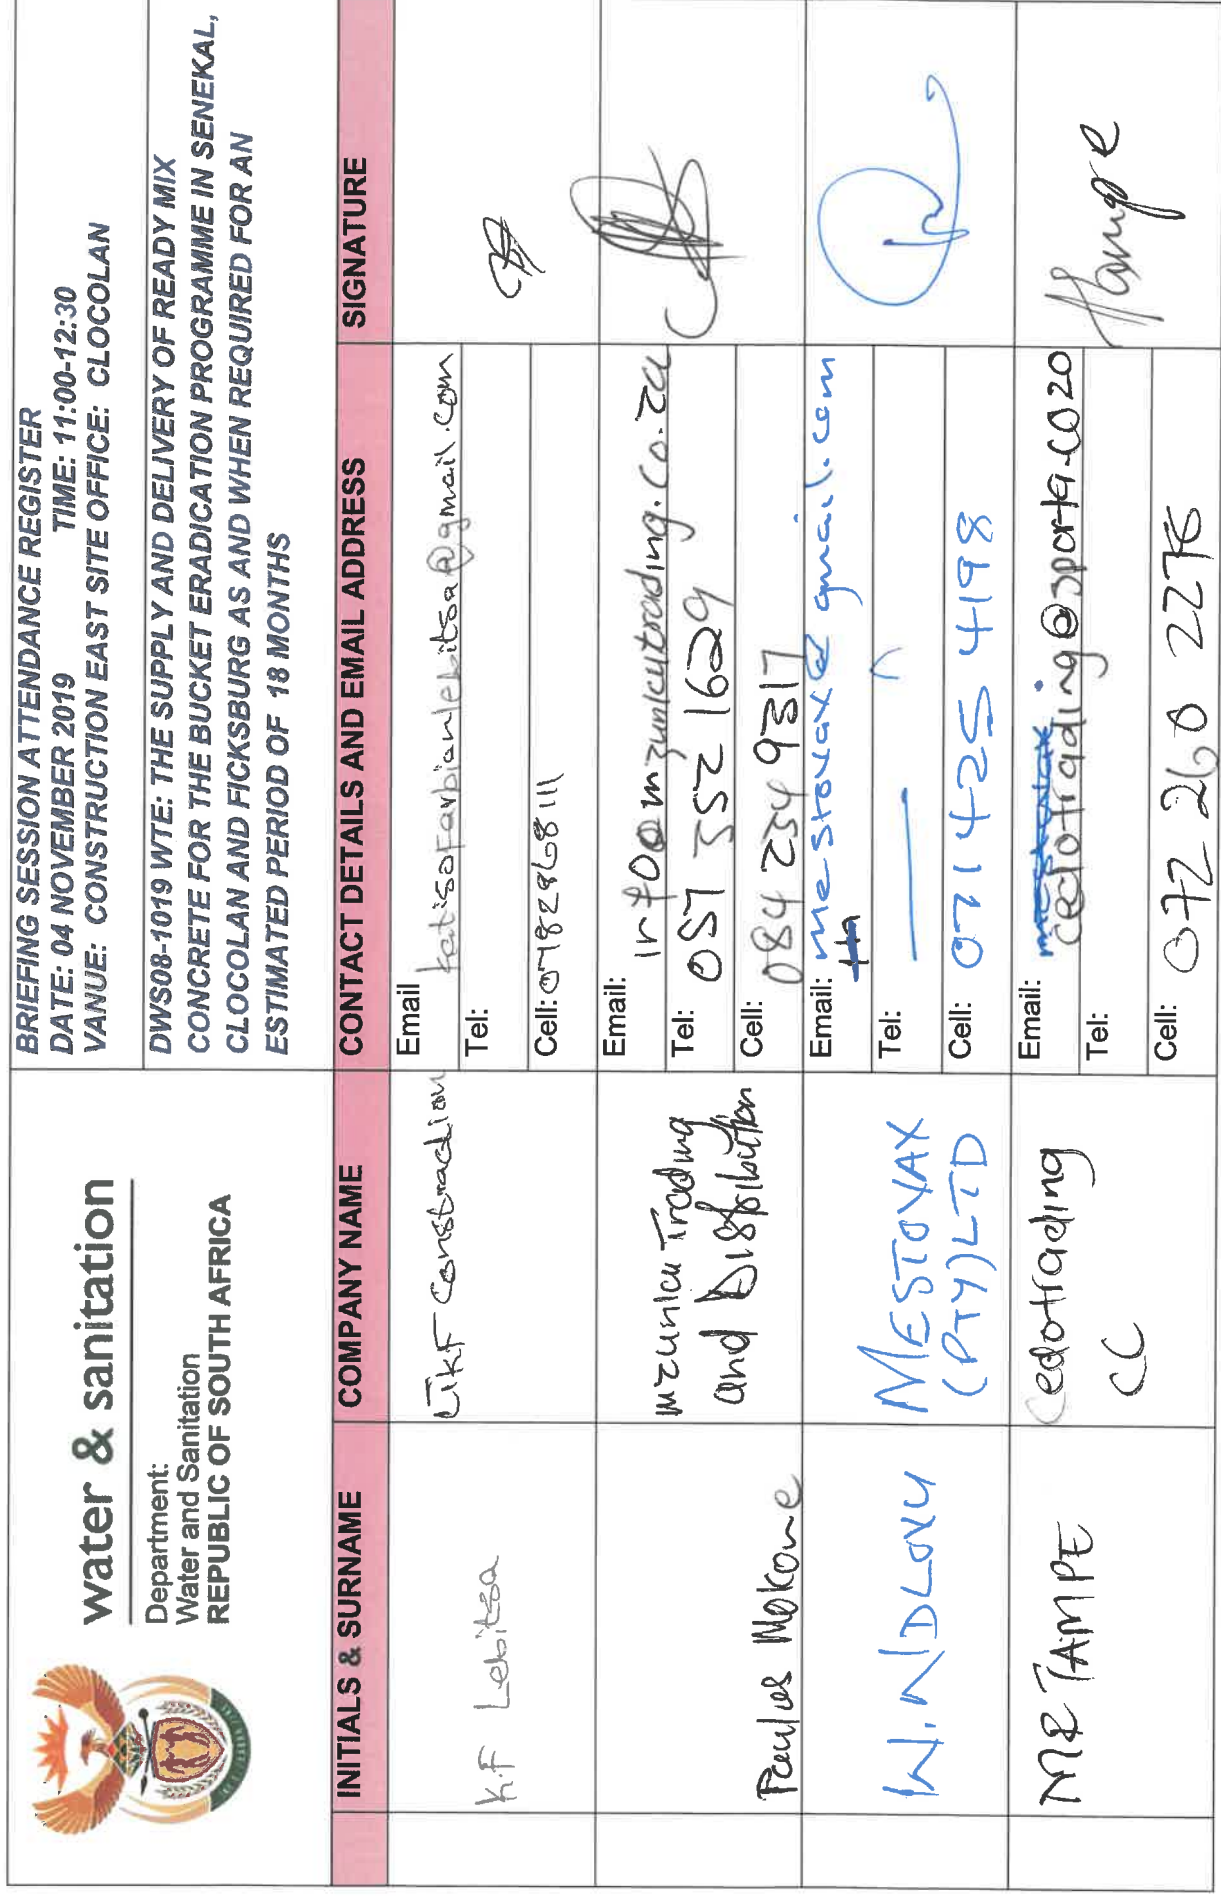 water & sanitation
Department:
Water and Sanitation
REPUBLIC OF SOUTH AFRICA
BRIEFING SESSION ATTENDANCE REGISTER
DATE: 04 NOVEMBER 2019 TIME: 11:00-12:30
VANUE: CONSTRUCTION EAST SITE OFFICE: CLOCOLAN
DWS08-1019 WTE: THE SUPPLY AND DELIVERY OF READY MIX
CONCRETE FOR THE BUCKET ERADICATION PROGRAMME IN SENEKAL,
CLOCOLAN AND FICKSBURG AS AND WHEN REQUIRED FOR AN
ESTIMATED PERIOD OF 18 MONTHS
INITIALS & SURNAME COMPANY NAME CONTACT DETAILS AND EMAIL ADDRESS SIGNATURE
K.F Lebitsa
Construction
Email katisofarbianlebitsa@gmail.com
Tel:
Cell: 0782868111
Paulos Mokone
Trading
and Distribution
Email: info@mzunkutrading.co.za
Tel: 057 352 1629
Cell: 084 234 9317
W. NDLOVU
MESTOVAX
(PTY) LTD
Email: mestovax@gmail.com
Tel:
Cell: 071 425 4198
MR TAMPE
Cedotrading
CC
Email:
cedotrading@3porta.co20
Tel:
Cell: 072 260 2276